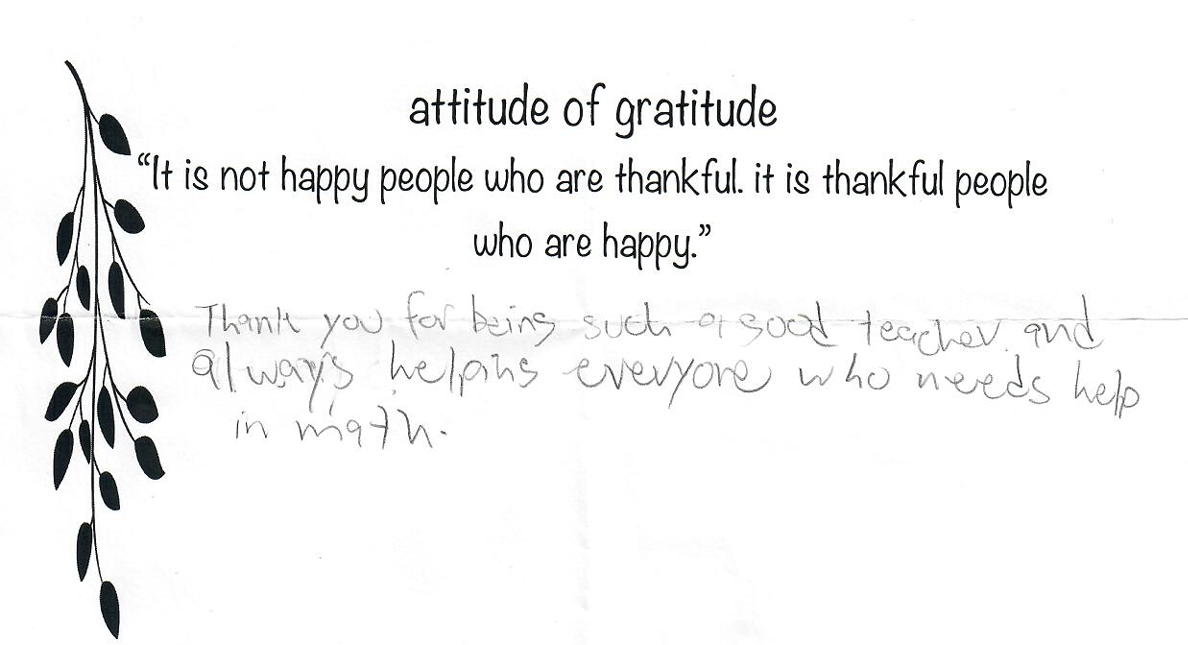 attitude of gratitude
“It is not happy people who are thankful. it is thankful people
who are happy.”
Thank you for being such a good teacher and
always helping everyone who needs help
in math.